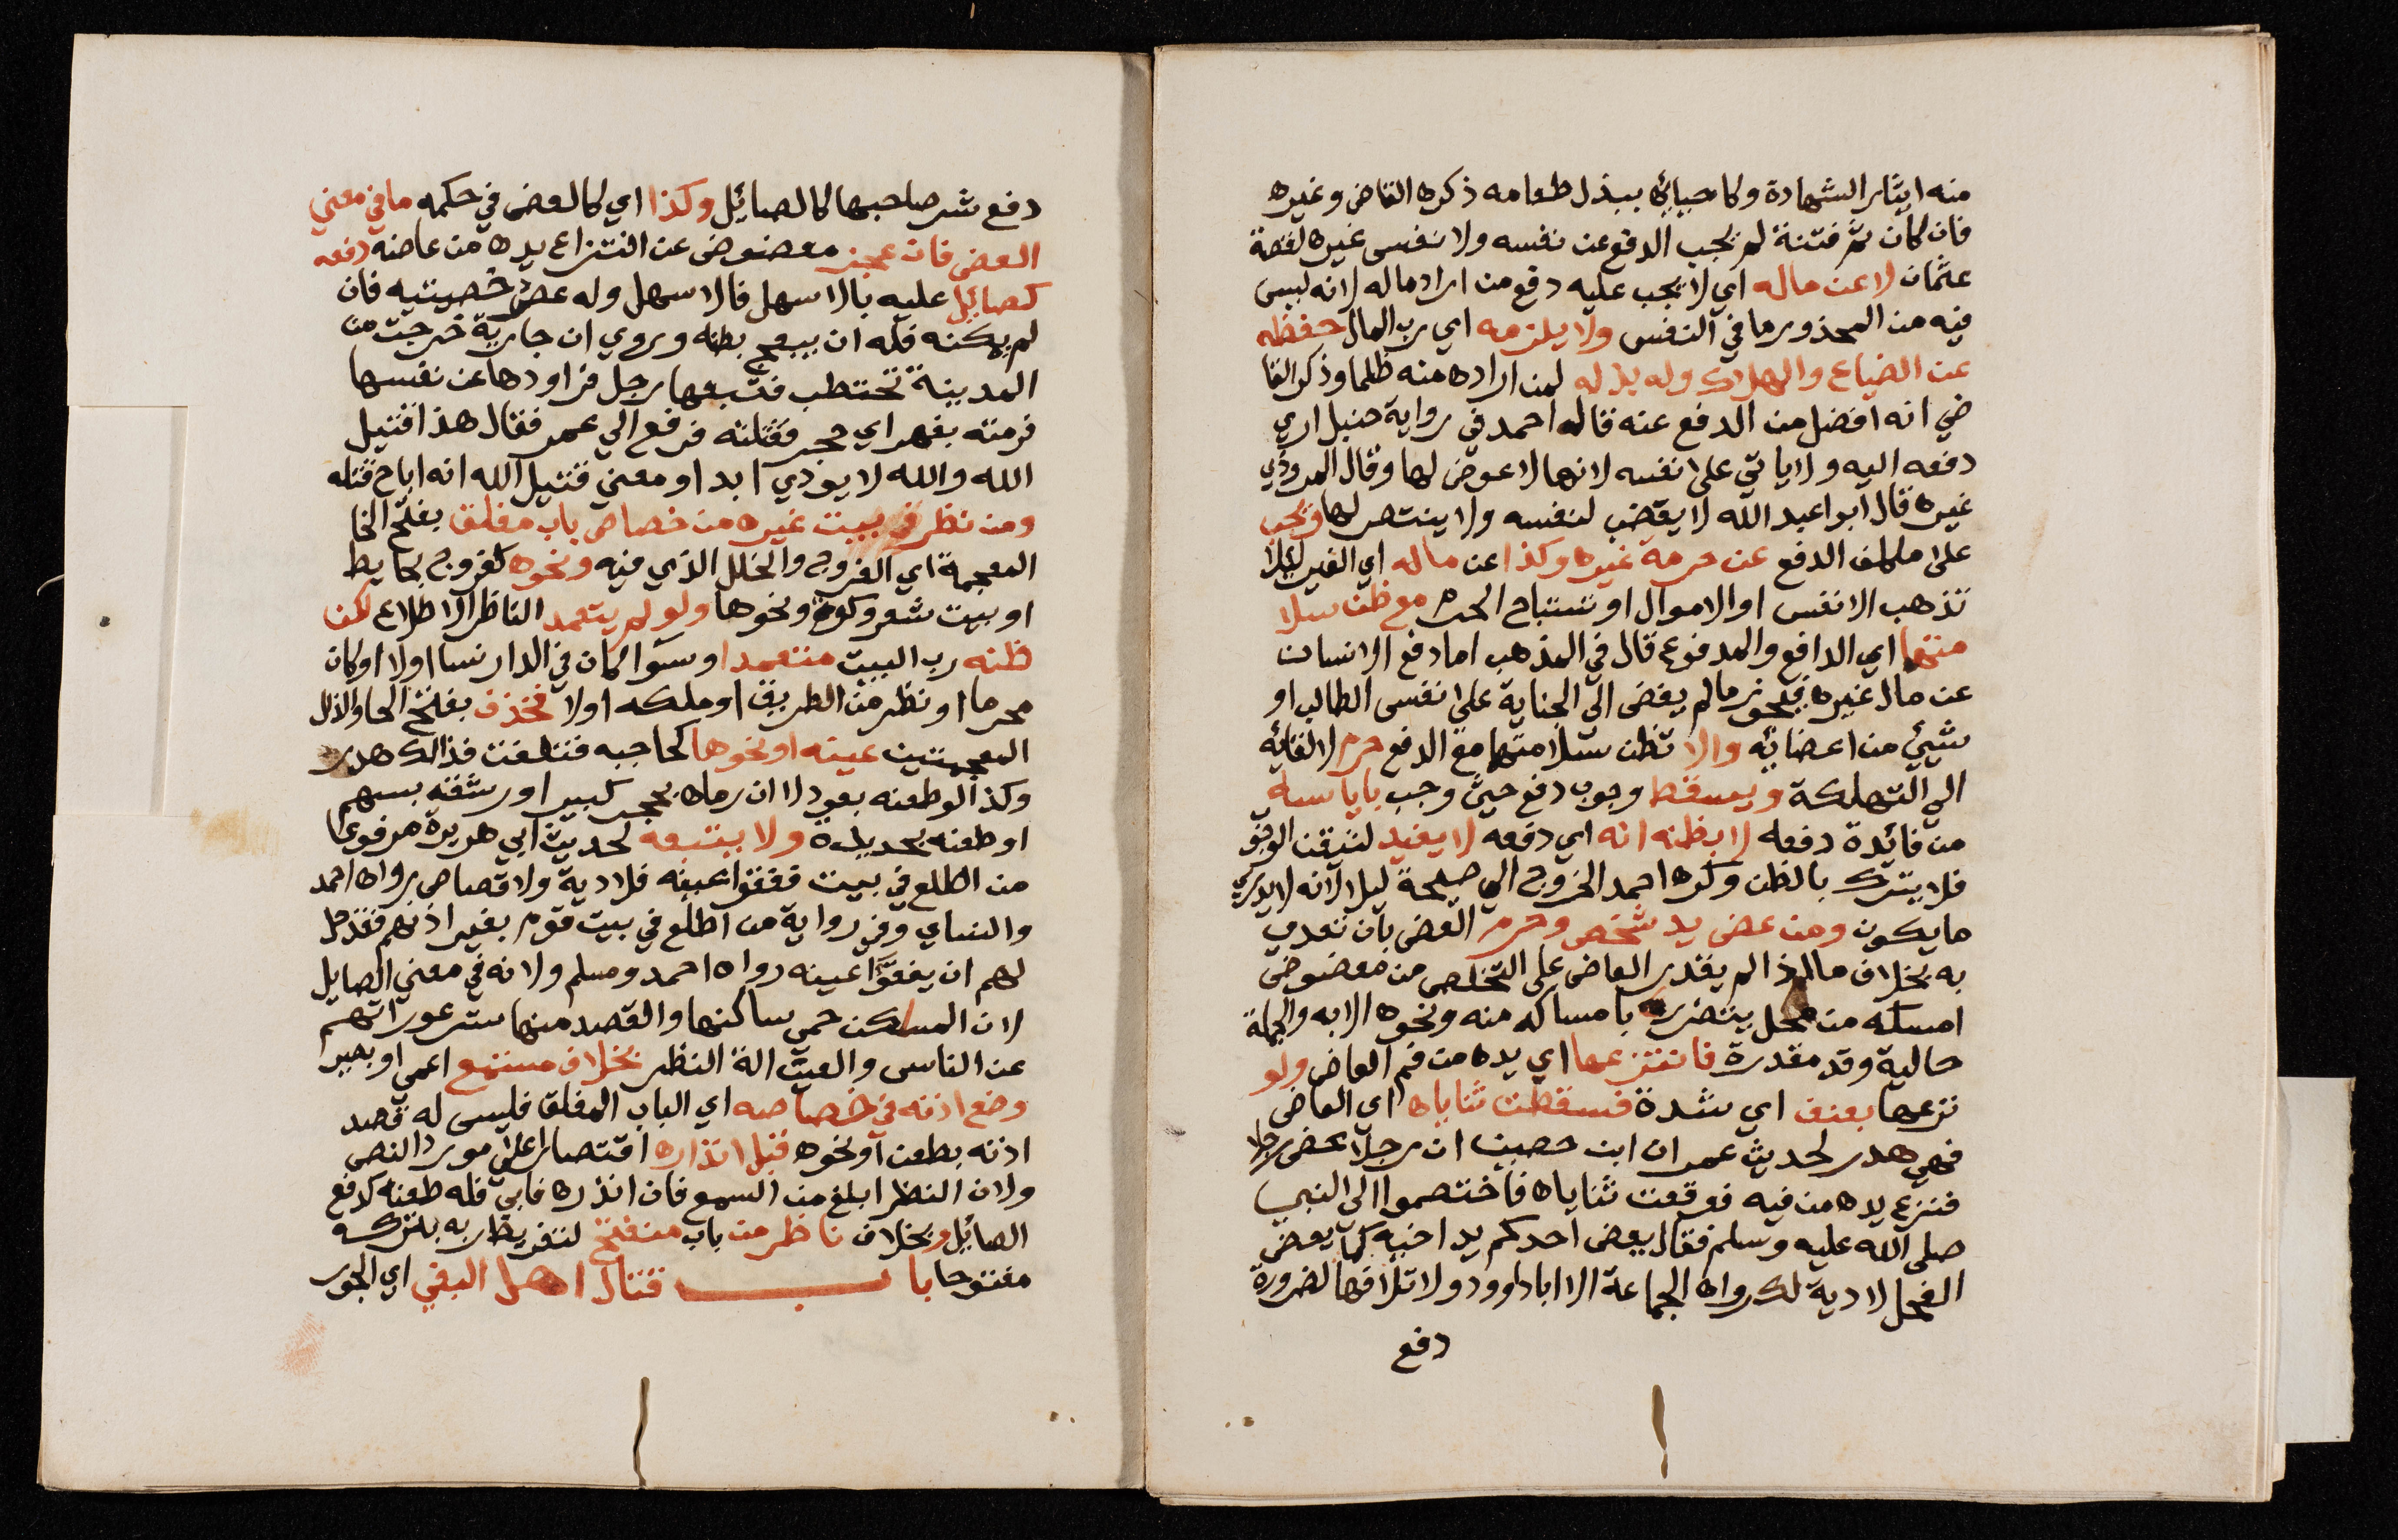 منه ايثار الشهادة وكاحيائه ببذل طعامه ذكره القاض وغيره
فان كان ثم فتنة لم يجب الدفع عن نفسه ولا نفس غيره لقصة
عثمان لا عن ماله اي لا يجب عليه دفع من اراد ماله لانه ليس
فيه من المحذور ما في النفس ولا يلزمه اي رب المال حفظه
عن الضياع والهلاك وله بذله لمن اراده منه ظلما وذكر القا
ضي انه افضل من الدفع عنه قاله احمد في رواية حنبل اري
دفعه اليه ولا ياتي على نفسه لانها لا عوض لها وقال المروذي
غيره قال ابوا عبد الله لا يغضب لنفسه ولا ينتصر لها ويجب
على مكلف الدفع عن حرمة غيره وكذا عن ماله اي الغير ليلا
تذهب الانفس او الاموال او تستباح الحرم مع ظن سلا
متهما اي الدافع والمدفوع قال في المذهب اما دفع الانسان
عن مال غيره فيجوز مالم يفض الى الجناية على نفس الطالب او
شيئ من اعضائه والا تظن سلامتهما مع الدفع حرم لالقائه
الي التهلكة ويسقط وجوب دفع حيث وجب باياسه
من فائدة دفعه لا بظنه انه اي دفعه لا يفيد لتيقن الوجوب
فلا يترك بالظن وكره احمد الخروج الي صيحة ليلا لانه لا يدري
ما يكون ومن عض يد شخص وحرم العض بان تعدى
به بخلاف ما اذا لم يقدر العاض على التخلص من معضوض
امسكه من محل يتضرر بامساكه منه ونحوه الا به والجملة
حالية وقد مقدرة فانتزعها اي يده من فم العاض ولو
نزعها بعنف اي شدة فسقطت ثناياه اي العاض
فهي هدر لحديث عمران ابن حصين ان رجلا عض رجلا
فنزع يده من فيه فوقعت ثناياه فاختصموا الى النبي
صلى الله عليه وسلم فقال يعض احدكم يد اخيه كما يعض
الفحل لا دية لك رواه الجماعة الا ابا داوود ولا تلافها لضرورة
دفع
دفع شر صاحبها كالصائل وكذا اي كالعض في حكمه ما في معني
العض فان عجز معضوض عن انتزاع يده من عاضه دفعه
كصائل عليه بالاسهل فالاسهل وله عصر خصيتيه فان
لم يمكنه فله ان يبعج بطنه وروي ان جارية خرجت من
المدينة تحتطب فتبعها رجل فراودها عن نفسها
فرمته بفهر اي حجر فقتلته فرفع الي عمر فقال هذا قتيل
الله والله لا يوذي ابدا ومعني قتيل الله انه اباح قتله
ومن نظر في بيت غيره من خصاص باب مغلق بفتح الخا
المعجمة اي الفروج والخلل الذي فيه ونحوه كفروج بحايط
او بيت شعر وكوة ونحوها ولو لم يتعمد الناظر الاطلاع لكن
ظنه رب البيت متعمدا وسوا كان في الدار نسا اولا او كان
محرما او نظر من الطريق او ملكه اولا فخذف بفتح الحا والذال
المعجمتين عينه او نحوها كحاجبه فتلفت فذالك هدر
وكذا لو طعنه بعود لا ان رماه بحجر كبير او رشقه بسهم
او طعنه بحديدة ولا يتبعه لحديث ابي هريرة مرفوعا
من اطلع في بيت ففقؤا عينه فلا دية ولا قصاص رواه احمد
والنساي وفي رواية من اطلع في بيت قوم بغير اذنهم فقد حل
لهم ان يفقؤا عينه رواه احمد ومسلم ولانه في معني الصايل
لان المساكن حمي ساكنها والقصد منها ستر عوراتهم
عن الناس والعين الة النظر بخلاف مستمع اعمي او بصير
وضع اذنه في خصاصه اي الباب المغلق فليس له قصد
اذنه بطعن او نحوه قبل انذاره اقتصارا على مورد النص
ولان النظر ابلغ من السمع فان انذره فابي فله طعنه كدفع
الصائل وبخلاف ناظر من باب منفتح لتفريط ربه بتركه
مفتوحا باب قتال اهل البغي اي الجور